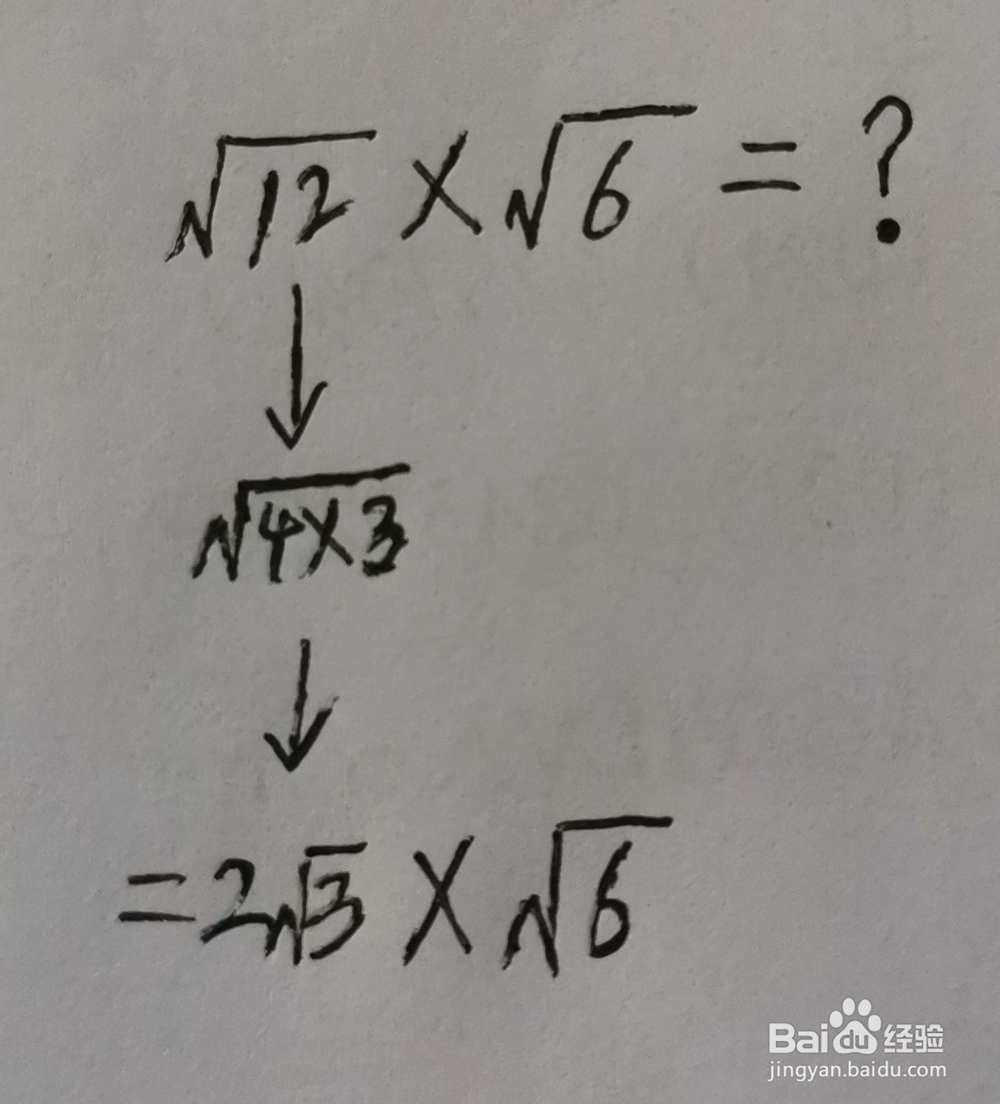 √12 × √6 = ?
↓
√4×3
↓
= 2√3 × √6
Baidu经验
jingyan.baidu.com